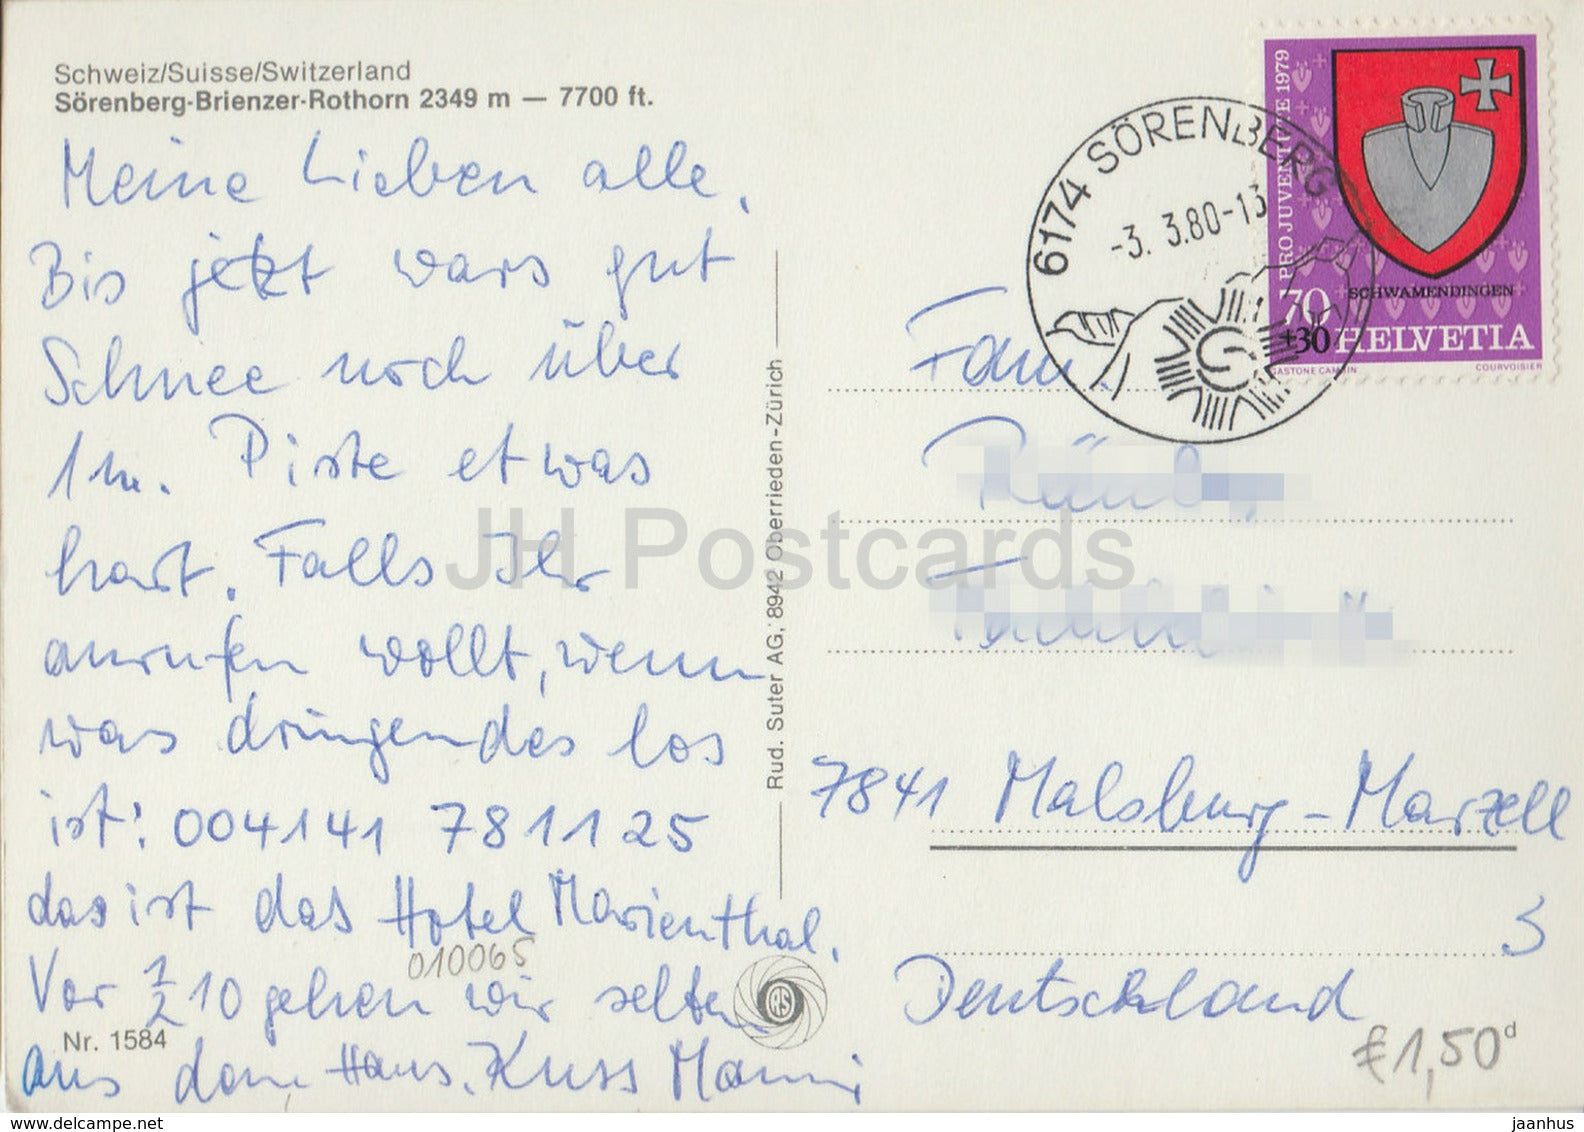 Schweiz/Suisse/Switzerland
Sörenberg-Brienzer-Rothorn 2349 m — 7700 ft.
Meine Lieben alle,
Bis jetzt wars gut
Schnee noch über
1m. Piste etwas
hart. Falls Ihr
anrufen wollt, wenn
was dringendes los
ist: 004141 781125
das ist das Hotel Marienthal.
Vor 1/2 10 gehen wir selten
aus dem Haus. Kuss Mami
010065
Nr. 1584
Rud. Suter AG, 8942 Oberrieden-Zürich
RS
6174 SÖRENBERG
-3. 3.80-13
PRO JUVENTUTE 1979
SCHWAMENDINGEN
70
+30 HELVETIA
GASTONE CAMBIN COURVOISIER
Fam.
7841 Malsburg-Marzell
3
Deutschland
€1,50 d
JH Postcards
https://www.delcampe.net
jaanhus